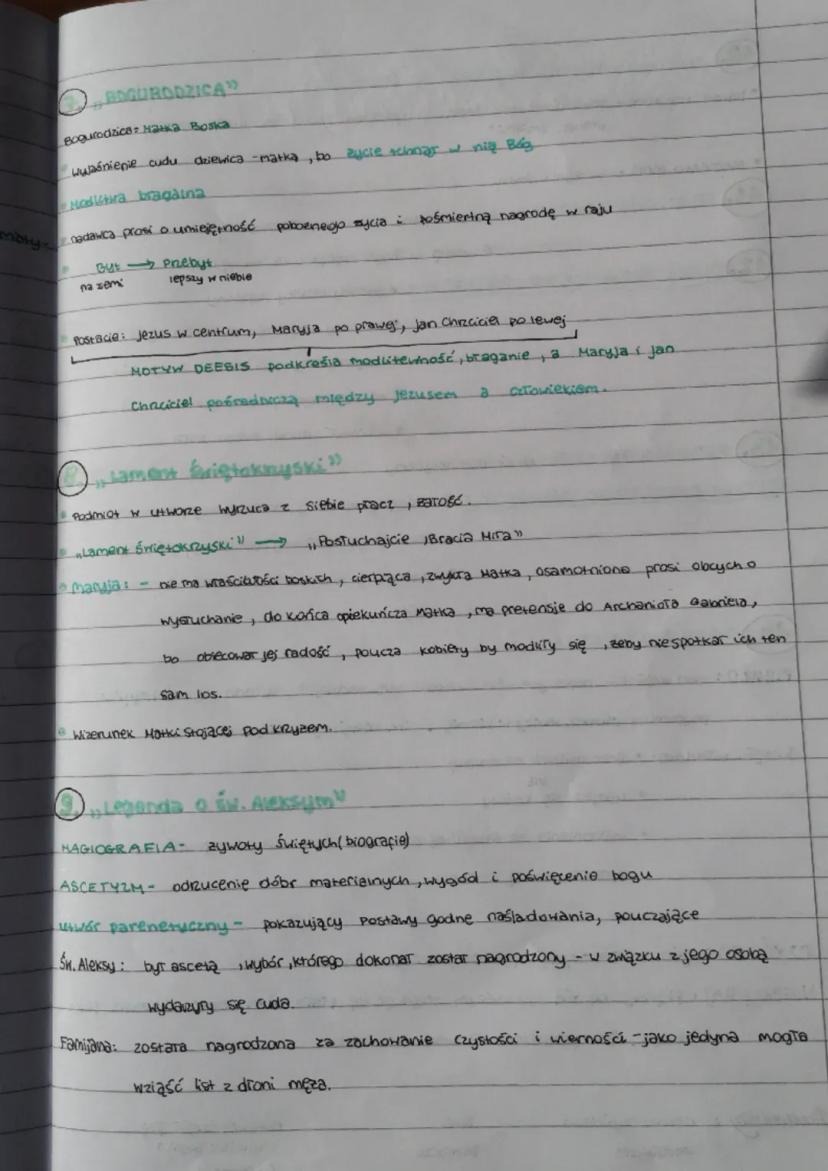 7. „BOGURODZICA”
Bogurodzica = Matka Boska
wyjaśnienie cudu dziewica-matka, bo życie tchnął w nią Bóg
Modlitwa błagalna
nadawca prosi o umiejętność pobożnego życia i pośmiertną nagrodę w raju
Byt → Przebyt
na ziemi lepszy w niebie
Postacie: Jezus w centrum, Maryja po prawej, Jan Chrzciciel po lewej
MOTYW DEESIS podkreśla modlitewność, błaganie, a Maryja i Jan
Chrzciciel pośredniczą między Jezusem a człowiekiem.
8. „Lament Świętokrzyski”
Podmiot w utworze wyrzuca z siebie płacz, żałość.
„Lament Świętokrzyski” → „Posłuchajcie, Bracia Miła”
Maryja: - nie ma właściwości boskich, cierpiąca, zwykła Matka, osamotniona prosi obcych o
wysłuchanie, do końca opiekuńcza matka, ma pretensje do Archanioła Gabriela,
bo obiecował jej radość, poucza kobiety by modliły się, żeby nie spotkał ich ten
sam los.
Wizerunek Matki stojącej pod krzyżem.
9. „Legenda o św. Aleksym”
HAGIOGRAFIA - żywoty świętych (biografie)
ASCETYZM - odrzucenie dóbr materialnych, wygód i poświęcenie bogu
utwór parenetyczny - pokazujący postawy godne naśladowania, pouczające
Św. Aleksy: był ascetą, wybór, którego dokonał został nagrodzony - w związku z jego osobą
wydarzyły się cuda.
Famijana: została nagrodzona za zachowanie czystości i wierności - jako jedyna mogła
wziąść list z dłoni męża.